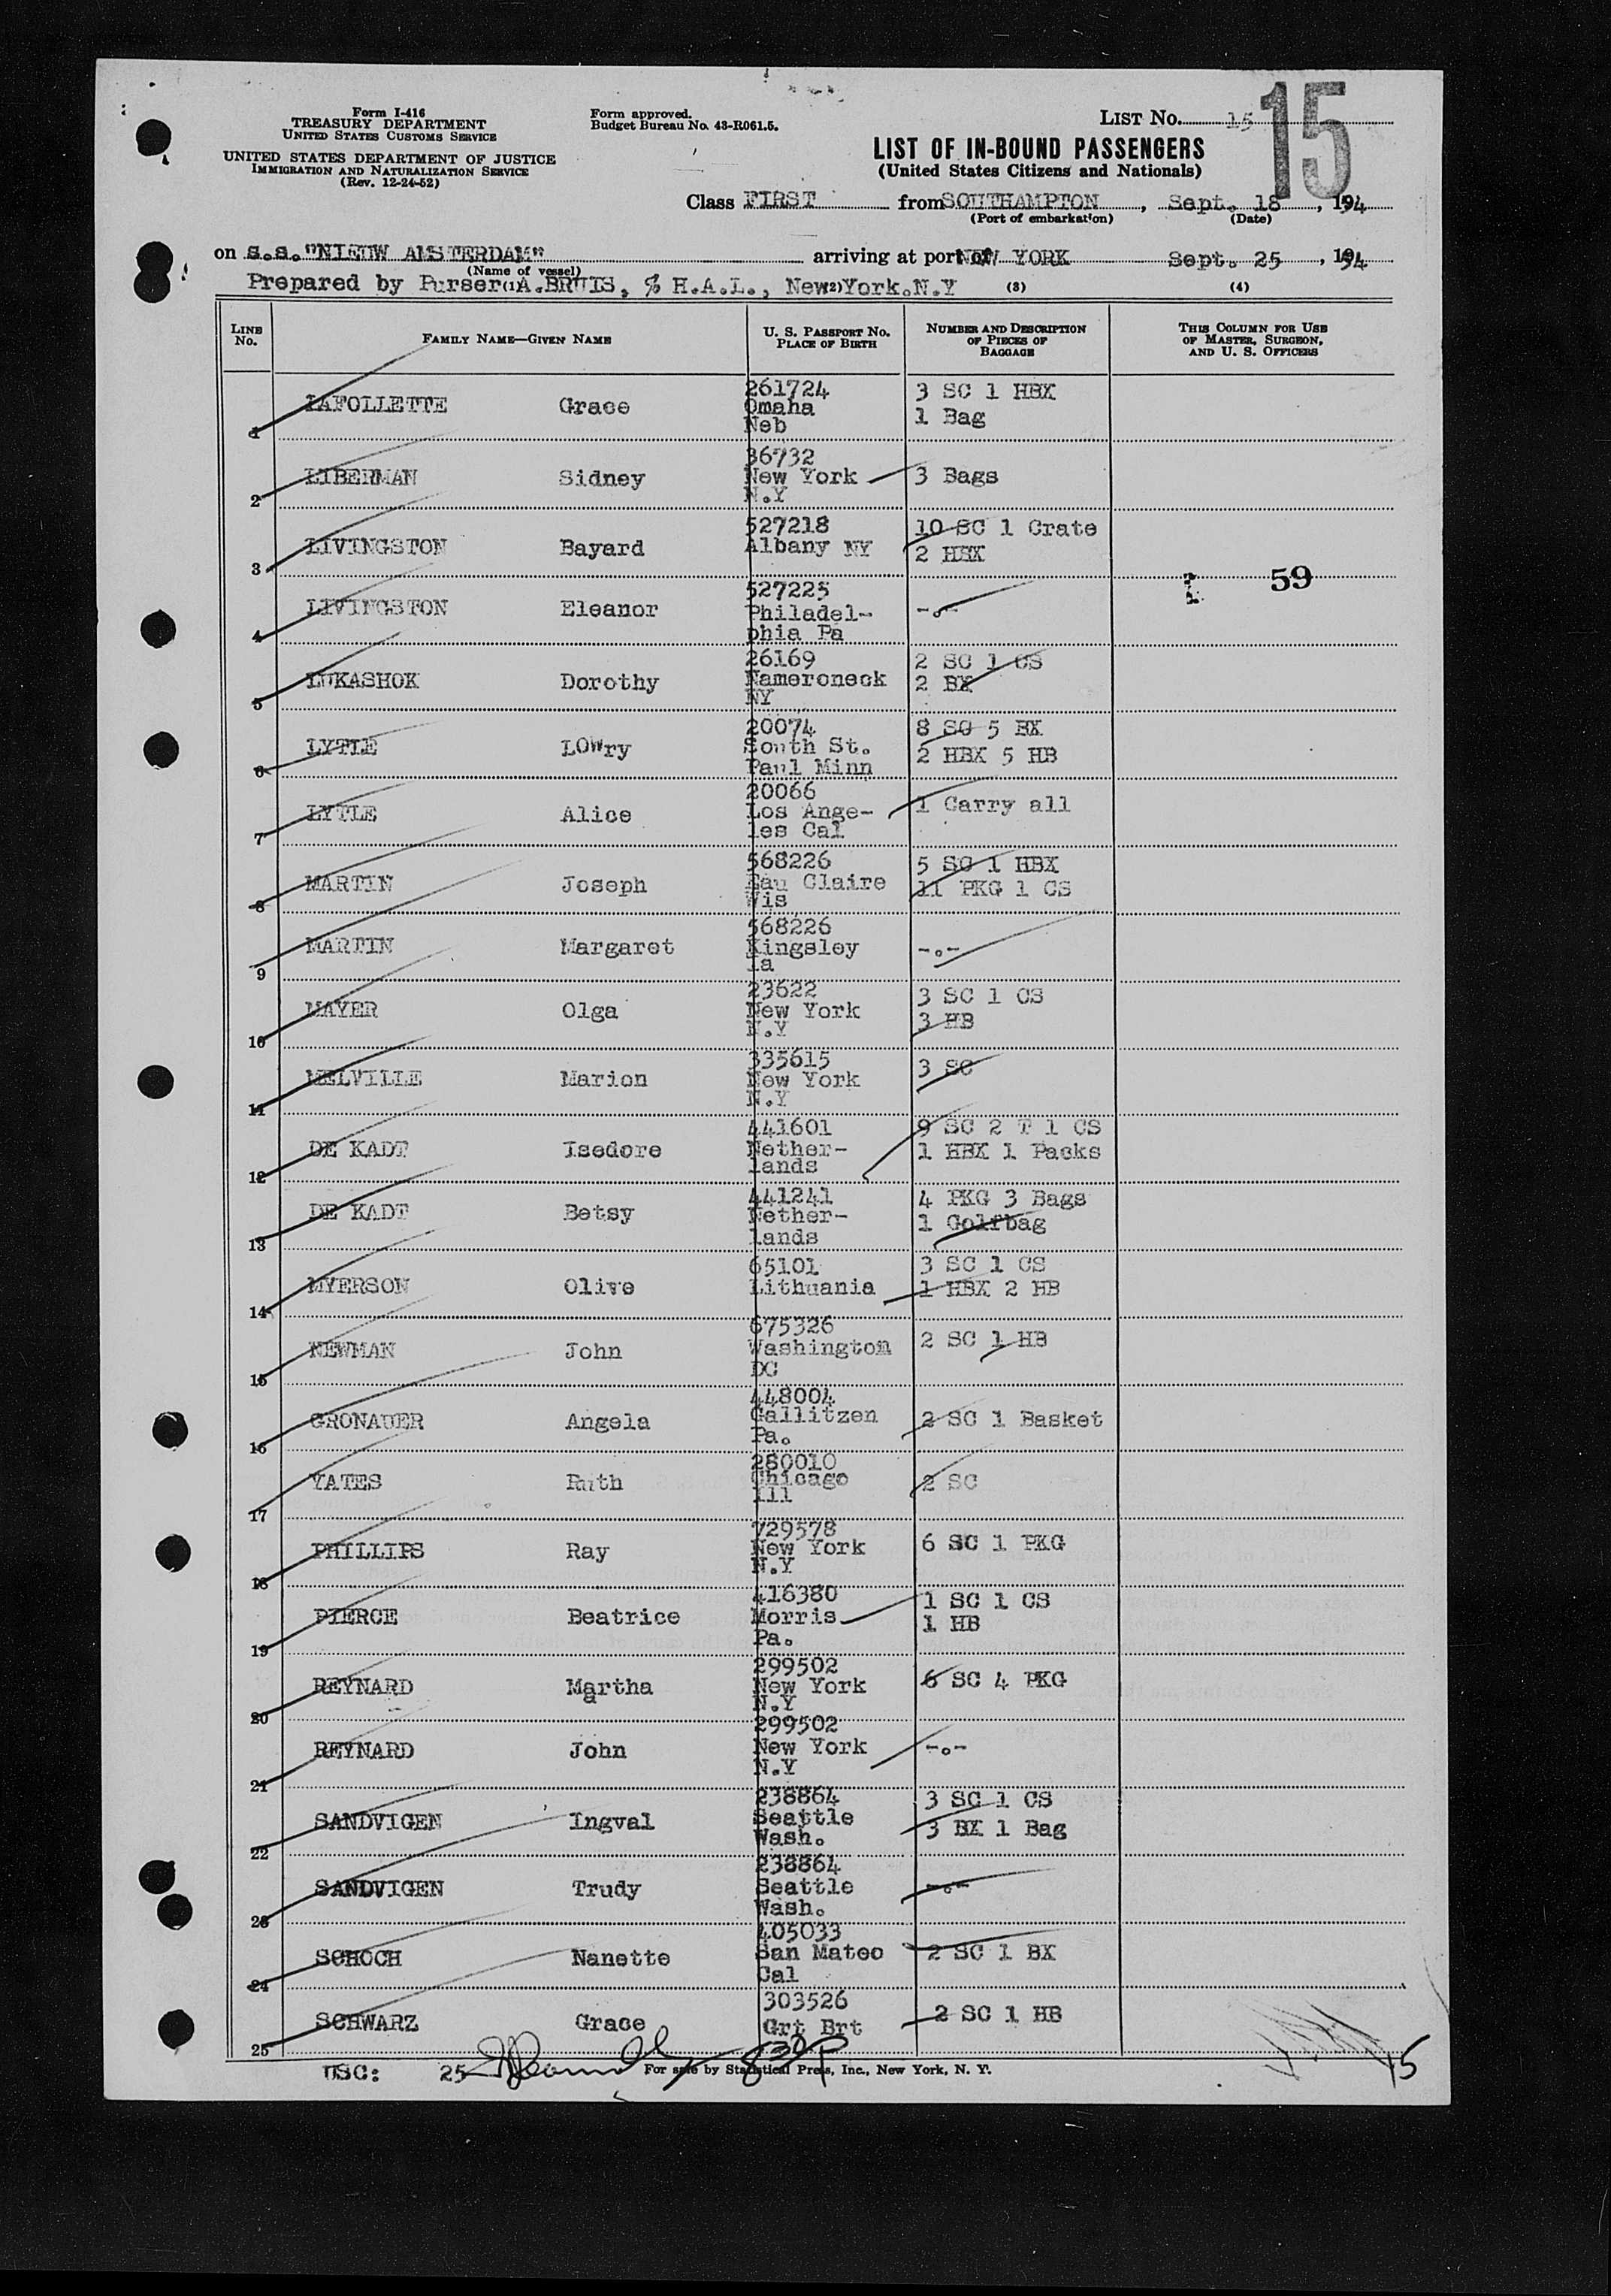 Form I-416
TREASURY DEPARTMENT
UNITED STATES CUSTOMS SERVICE
UNITED STATES DEPARTMENT OF JUSTICE
IMMIGRATION AND NATURALIZATION SERVICE
(Rev. 12-24-52)
Form approved.
Budget Bureau No. 43-R061.5.
LIST No. 15 15
LIST OF IN-BOUND PASSENGERS
(United States Citizens and Nationals)
Class FIRST from SOUTHAMPTON, Sept. 18, 1954
(Port of embarkation) (Date)
on s.s. "NIEUW AMSTERDAM" arriving at port of NEW YORK Sept. 25, 1954
(Name of vessel)
Prepared by Purser A.BRUIS, % H.A.L., New York.N.Y
(1) (2) (3) (4)
LINE No. FAMILY NAME—GIVEN NAME U. S. PASSPORT No. PLACE OF BIRTH NUMBER AND DESCRIPTION OF PIECES OF BAGGAGE THIS COLUMN FOR USE OF MASTER, SURGEON, AND U. S. OFFICERS
1 LAFOLLETTE Grace 261724 Omaha Neb 3 SC 1 HBX 1 Bag
2 LIBERMAN Sidney 36732 New York N.Y 3 Bags
3 LIVINGSTON Bayard 527218 Albany NY 10 SC 1 Crate 2 HBX
59
4 LIVINGSTON Eleanor 527225 Philadel- phia Pa -.-
5 LUKASHOK Dorothy 26169 Mameroneck NY 2 SC 1 CS 2 BX
6 LYTLE LOWry 20074 South St. Paul Minn 8 SC 5 BX 2 HBX 5 HB
7 LYTLE Alice 20066 Los Ange- les Cal 1 Carry all
8 MARTIN Joseph 568226 Eau Claire Wis 5 SC 1 HBX 11 PKG 1 CS
9 MARTIN Margaret 568226 Kingsley Ia -.-
10 MAYER Olga 23622 New York N.Y 3 SC 1 CS 3 HB
11 MELVILLE Marion 335615 New York N.Y 3 SC
12 DE KADT Isedore 441601 Nether- lands 9 SC 2 T 1 CS 1 HBX 1 Packs
13 DE KADT Betsy 441241 Nether- lands 4 PKG 3 Bags 1 Golfbag
14 MYERSON Olive 65101 Lithuania 3 SC 1 CS 1 HBX 2 HB
15 NEWMAN John 675326 Washington DC 2 SC 1 HB
16 GRONAUER Angela 448004 Gallitzen Pa. 2 SC 1 Basket
17 YATES Ruth 280010 Chicago Ill 2 SC
18 PHILLIPS Ray 729578 New York N.Y 6 SC 1 PKG
19 PIERCE Beatrice 416380 Morris Pa. 1 SC 1 CS 1 HB
20 REYNARD Martha 299502 New York N.Y 6 SC 4 PKG
21 REYNARD John 299502 New York N.Y -.-
22 SANDVIGEN Ingval 238864 Seattle Wash. 3 SC 1 CS 3 BX 1 Bag
23 SANDVIGEN Trudy 238864 Seattle Wash. -.-
24 SCHOCH Nanette 405033 San Mateo Cal 2 SC 1 BX
25 SCHWARZ Grace 303526 Grt Brt 2 SC 1 HB
USC: 25
For sale by Statistical Press, Inc., New York, N. Y.
15